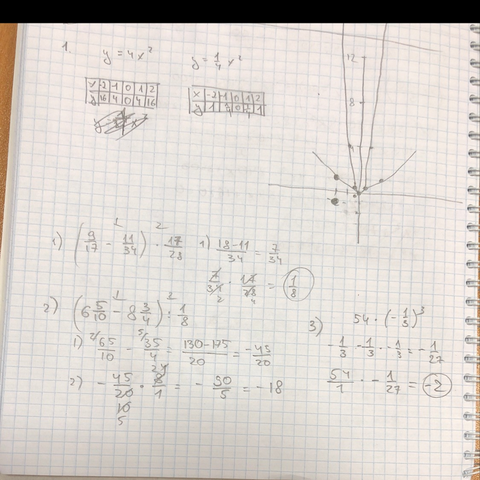 1. y = 4x² y = 1/4 x²
x -2 -1 0 1 2
y 16 4 0 4 16
x -2 -1 0 1 2
y 1 1/4 0 1/4 1
12
8
4
1) (9/17 - 11/34) · 17/28 1) 18-11/34 = 7/34
7/34 · 17/28 = 1/8
2) (6 5/10 - 8 3/4) : 1/8
1) 65/10 - 35/4 = 130-175/20 = -45/20
2) - 45/20 · 8/1 = - 90/5 = -18
3) 54 · (-1/3)³
-1/3 · -1/3 · -1/3 = -1/27
54/1 · -1/27 = -2